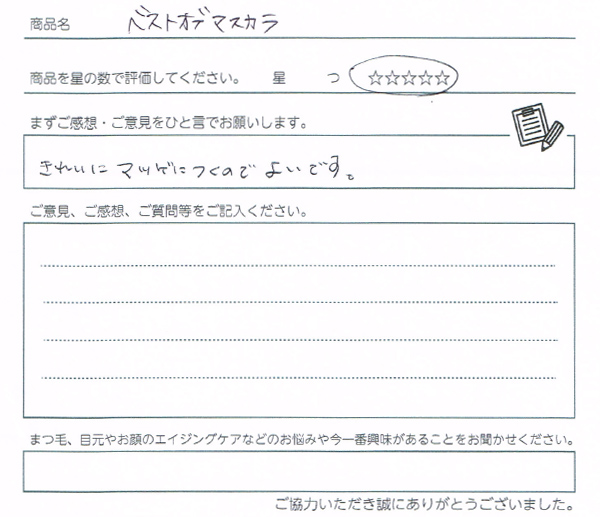 商品名 ベストオブマスカラ
商品を星の数で評価してください。 星 つ ☆☆☆☆☆
まずご感想・ご意見をひと言でお願いします。
きれいにマツゲにつくのでよいです。
ご意見、ご感想、ご質問等をご記入ください。
まつ毛、目元やお顔のエイジングケアなどのお悩みや今一番興味があることをお聞かせください。
ご協力いただき誠にありがとうございました。